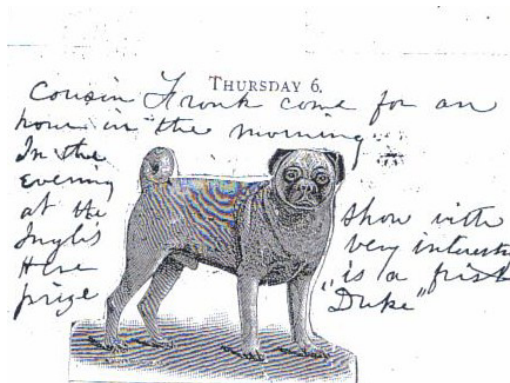 THURSDAY 6.
Cousin Frank come for an
hour in the morning
In the
Evening
at the show with
very interest
Here is a first
prize "Duke"